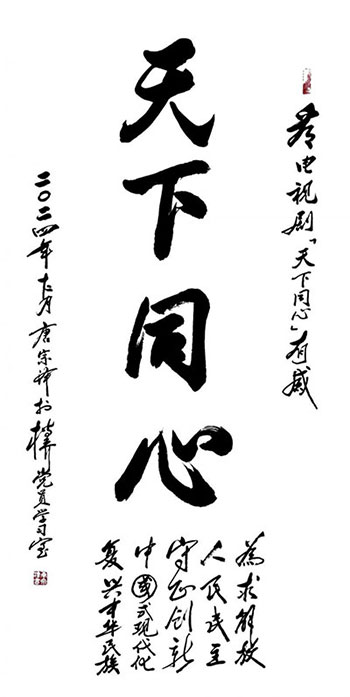 看电视剧「天下同心」有感
天下同心
為求解放
人民民主
守正创新
中國式现代化
复兴中华民族
二〇二四年十月唐宗 於 党员学习室